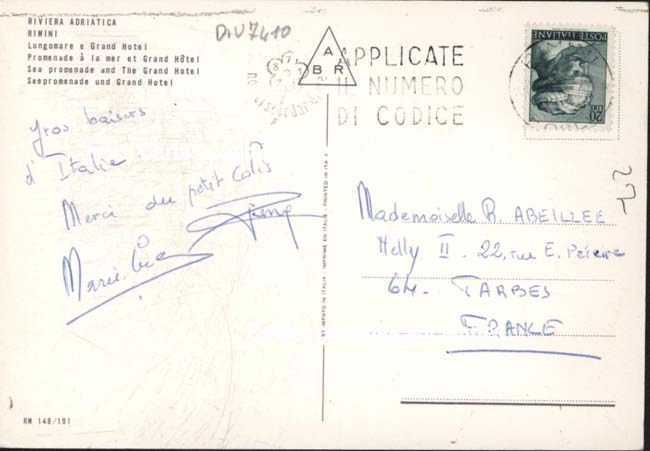 RIVIERA ADRIATICA
RIMINI
Lungomare e Grand Hotel
Promenade à la mer et Grand Hôtel
Sea promenade and The Grand Hotel
Seepromenade und Grand Hotel
DIV7410
A
BR
APPLICATE
IL NUMERO
DI CODICE
POSTE ITALIANE
LIRE 20
gros baisers
d'Italie.
Merci du petit colis
Pierre
Marie
ST. IMPATO IN ITALIA - IMPRIME EN ITALIE - PRINTED IN ITALY
Mademoiselle R. ABEILLEE
Helly II. 22, rue E. Péreire
64. TARBES
FRANCE
RM 148/191